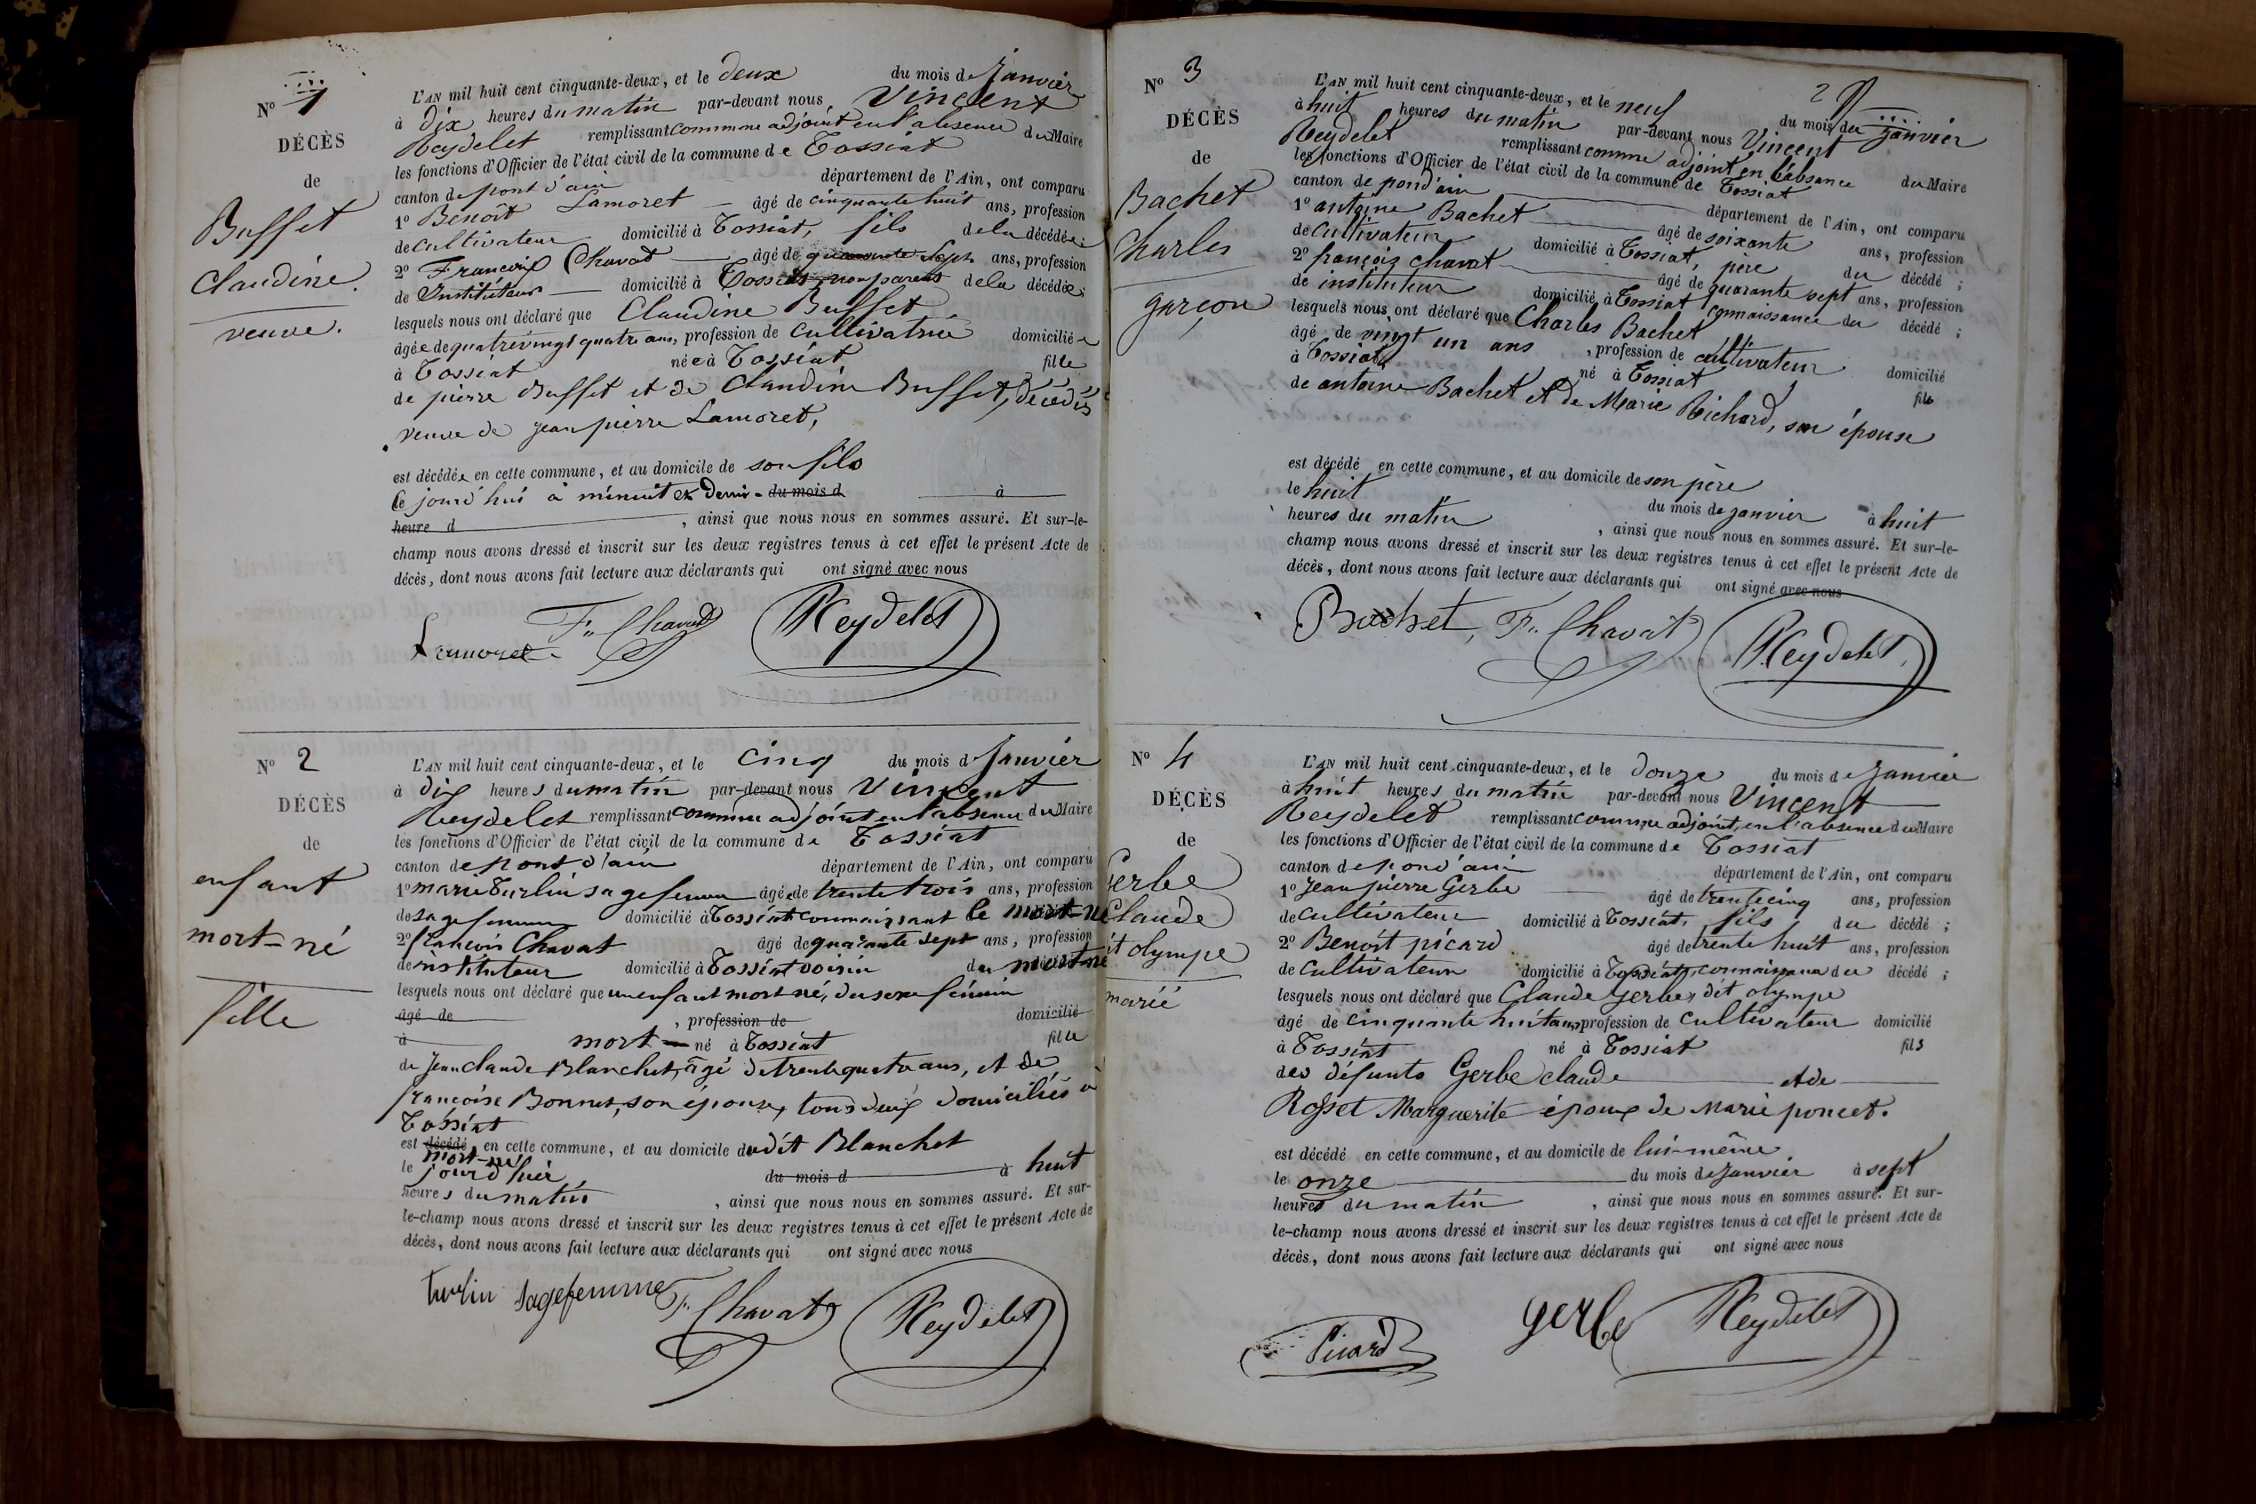 N° 1
DÉCÈS
de
Buffet
Claudine.
veuve.
L'AN mil huit cent cinquante-deux, et le deux du mois de Janvier
à dix heures du matin par-devant nous Vincent
Reydelet remplissant comme adjoint en l'absence du Maire
les fonctions d'Officier de l'état civil de la commune de Tossiat
canton de pont d'ain département de l'Ain, ont comparu
1° Benoît Lamoret âgé de cinquante huit ans, profession
de cultivateur domicilié à Tossiat, fils de la décédée;
2° François Chavat âgé de quarante sept ans, profession
de Instituteur domicilié à Tossiat, non parent de la décédée;
lesquels nous ont déclaré que Claudine Buffet
âgée de quatrevingt quatre ans, profession de Cultivatrice domiciliée
à Tossiat née à Tossiat fille
de pierre Buffet et de Claudine Buffet, décédés
veuve de jean pierre Lamoret,
est décédée en cette commune, et au domicile de son fils
le jourd'hui à minuit et demi du mois d à
heure d , ainsi que nous nous en sommes assuré. Et sur-le-
champ nous avons dressé et inscrit sur les deux registres tenus à cet effet le présent Acte de
décès, dont nous avons fait lecture aux déclarants qui ont signé avec nous
Lamoret F. Chavat Reydelet
N° 2
DÉCÈS
de
enfant
mort-né
fille
L'AN mil huit cent cinquante-deux, et le cinq du mois d Janvier
à dix heures du matin par-devant nous Vincent
Reydelet remplissant comme adjoint en l'absence du Maire
les fonctions d'Officier de l'état civil de la commune de Tossiat
canton de pont d'ain département de l'Ain, ont comparu
1° marie Turlin sage femme âgée de trente trois ans, profession
de sage femme domicilié à Tossiat connaissant le mort-né
2° françois Chavat âgé de quarante sept ans, profession
de instituteur domicilié à Tossiat voisin du mort-né
lesquels nous ont déclaré que un enfant mort né, du sexe féminin
âgé de , profession de domicilié
à mort-né à Tossiat fille
de Jean claude Blanchet, âgé de trente quatre ans, et de
françoise Bonnet, son épouse, tous deux domiciliés à
Tossiat
est décédé en cette commune, et au domicile dudit Blanchet
mort-né
le jour d'hier du mois d à huit
heures du matin , ainsi que nous nous en sommes assuré. Et sur-
le-champ nous avons dressé et inscrit sur les deux registres tenus à cet effet le présent Acte de
décès, dont nous avons fait lecture aux déclarants qui ont signé avec nous
turlin sagefemme F. Chavat Reydelet
2
N° 3
DÉCÈS
de
Bachet
Charles
garçon
L'AN mil huit cent cinquante-deux, et le neuf du mois de Janvier
à huit heures du matin par-devant nous Vincent
Reydelet remplissant comme adjoint en l'absence du Maire
les fonctions d'Officier de l'état civil de la commune de Tossiat
canton de pond'ain département de l'Ain, ont comparu
1° antoine Bachet âgé de soixante ans, profession
de cultivateur domicilié à Tossiat, père du décédé;
2° françois chavat âgé de quarante sept ans, profession
de instituteur domicilié à Tossiat connaissance du décédé;
lesquels nous ont déclaré que Charles Bachet
âgé de vingt un ans , profession de cultivateur domicilié
à Tossiat né à Tossiat fils
de antoine Bachet et de Marie Richard, son épouse
est décédé en cette commune, et au domicile de son père
le huit du mois de janvier à huit
heures du matin , ainsi que nous nous en sommes assuré. Et sur-le-
champ nous avons dressé et inscrit sur les deux registres tenus à cet effet le présent Acte de
décès, dont nous avons fait lecture aux déclarants qui ont signé avec nous
Bachet, F. Chavat Reydelet
N° 4
DÉCÈS
de
Gerbe
Claude
dit olympe
marié
L'AN mil huit cent cinquante-deux, et le douze du mois de Janvier
à huit heures du matin par-devant nous Vincent
Reydelet remplissant comme adjoint, en l'absence du Maire
les fonctions d'Officier de l'état civil de la commune de Tossiat
canton de pond'ain département de l'Ain, ont comparu
1° Jean pierre Gerbe âgé de trente cinq ans, profession
de cultivateur domicilié à Tossiat, fils du décédé;
2° Benoît picard âgé de trente huit ans, profession
de Cultivateur domicilié à Tossiat, connaissance du décédé;
lesquels nous ont déclaré que Claude Gerbe, dit olympe
âgé de cinquante huit ans, profession de Cultivateur domicilié
à Tossiat né à Tossiat fils
des défunts Gerbe claude et de
Rosset Marguerite époux de Marie poncet.
est décédé en cette commune, et au domicile de lui-même
le onze du mois de Janvier à sept
heures du matin , ainsi que nous nous en sommes assuré. Et sur-
le-champ nous avons dressé et inscrit sur les deux registres tenus à cet effet le présent Acte de
décès, dont nous avons fait lecture aux déclarants qui ont signé avec nous
Picard gerbe Reydelet